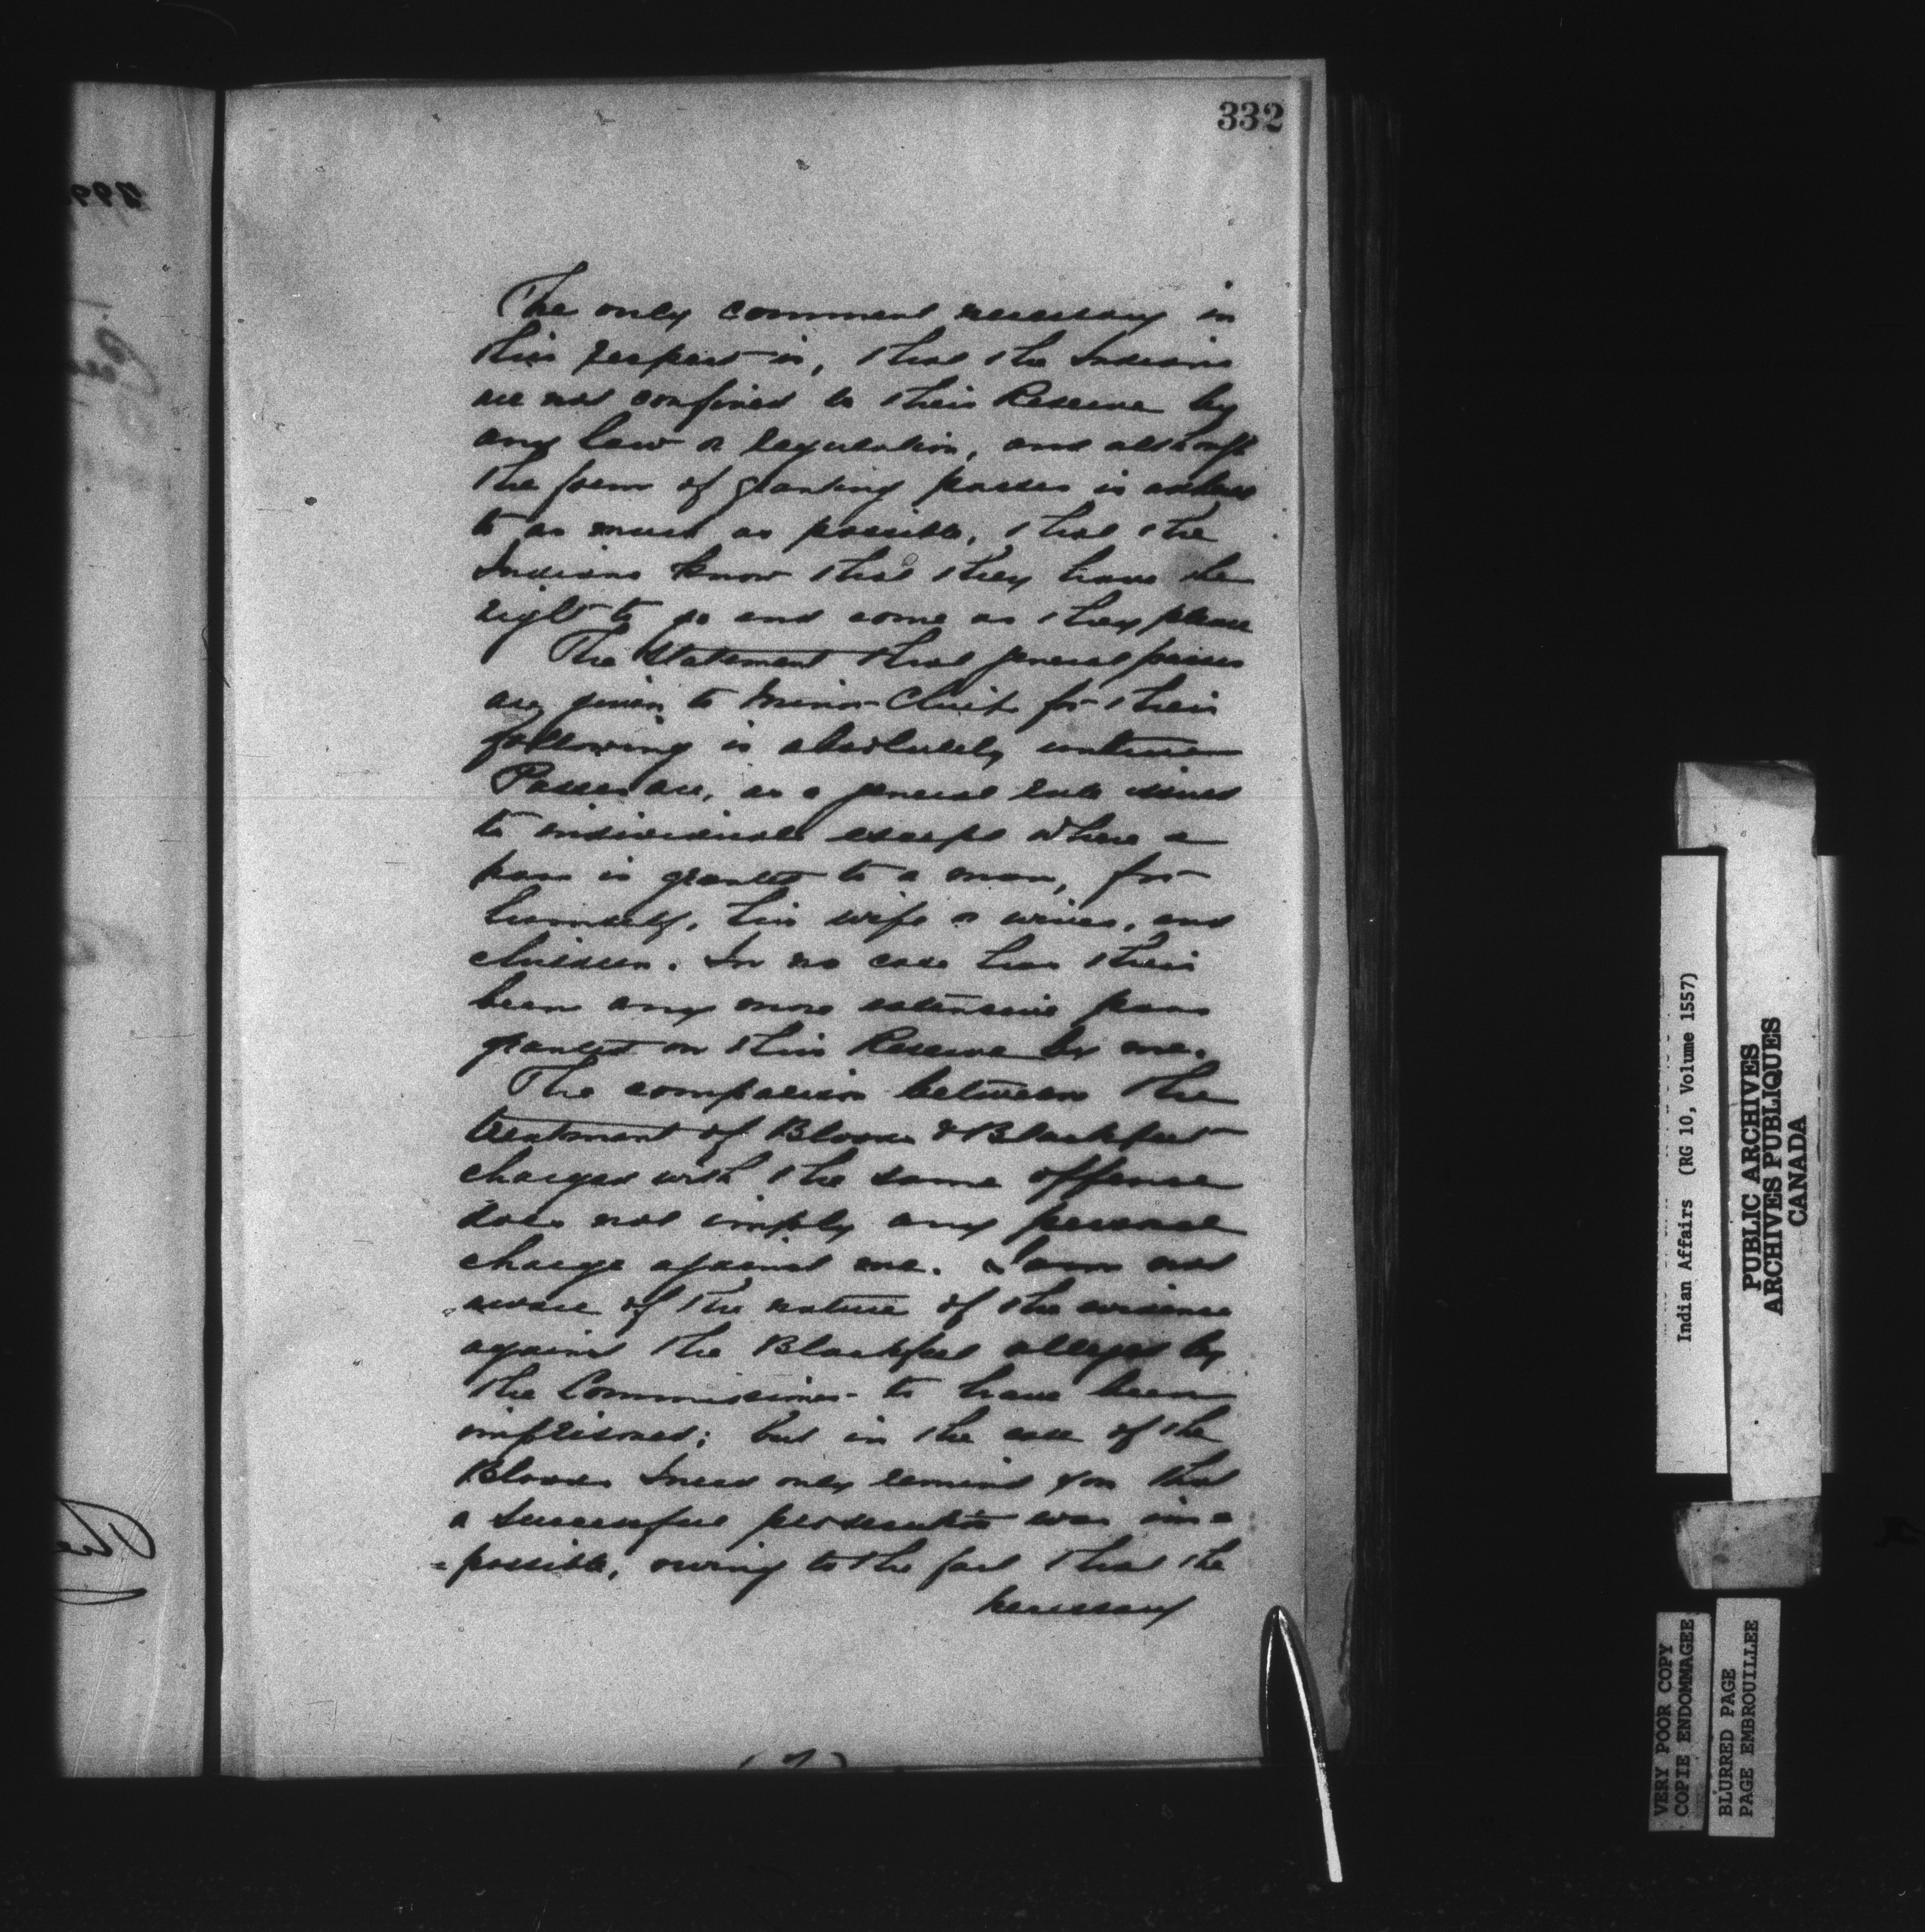 332
The only comment necessary in
this respect is, that the Indians
are not confined to their Reserve by
any law or regulation, and altho'
the form of granting passes is adhered
to as much as possible, that the
Indians know that they have the
right to go and come as they please
The Statement that general passes
are given to Minor Chiefs for their
following is absolutely untrue
Passes are, as a general rule issued
to individuals except where a
pass is granted to a man, for
himself, his wife or wives, and
children. In no case has their
been any more extensive pass
granted on this Reserve by me.
The comparison between the
treatment of Bloods & Blackfeet
charged with the same offense
does not imply any personal
charge against me. I am not
aware of the nature of the evidence
against the Blackfeet alleged by
the Commissioner to have been
imprisoned; but in the case of the
Bloods I need only remind you that
a successful prosecution was im=
=possible, owing to the fact that the
necessary
Indian Affairs (RG 10, Volume 1557)
PUBLIC ARCHIVES
ARCHIVES PUBLIQUES
CANADA
VERY POOR COPY
COPIE ENDOMMAGEE
BLURRED PAGE
PAGE EMBROUILLEE